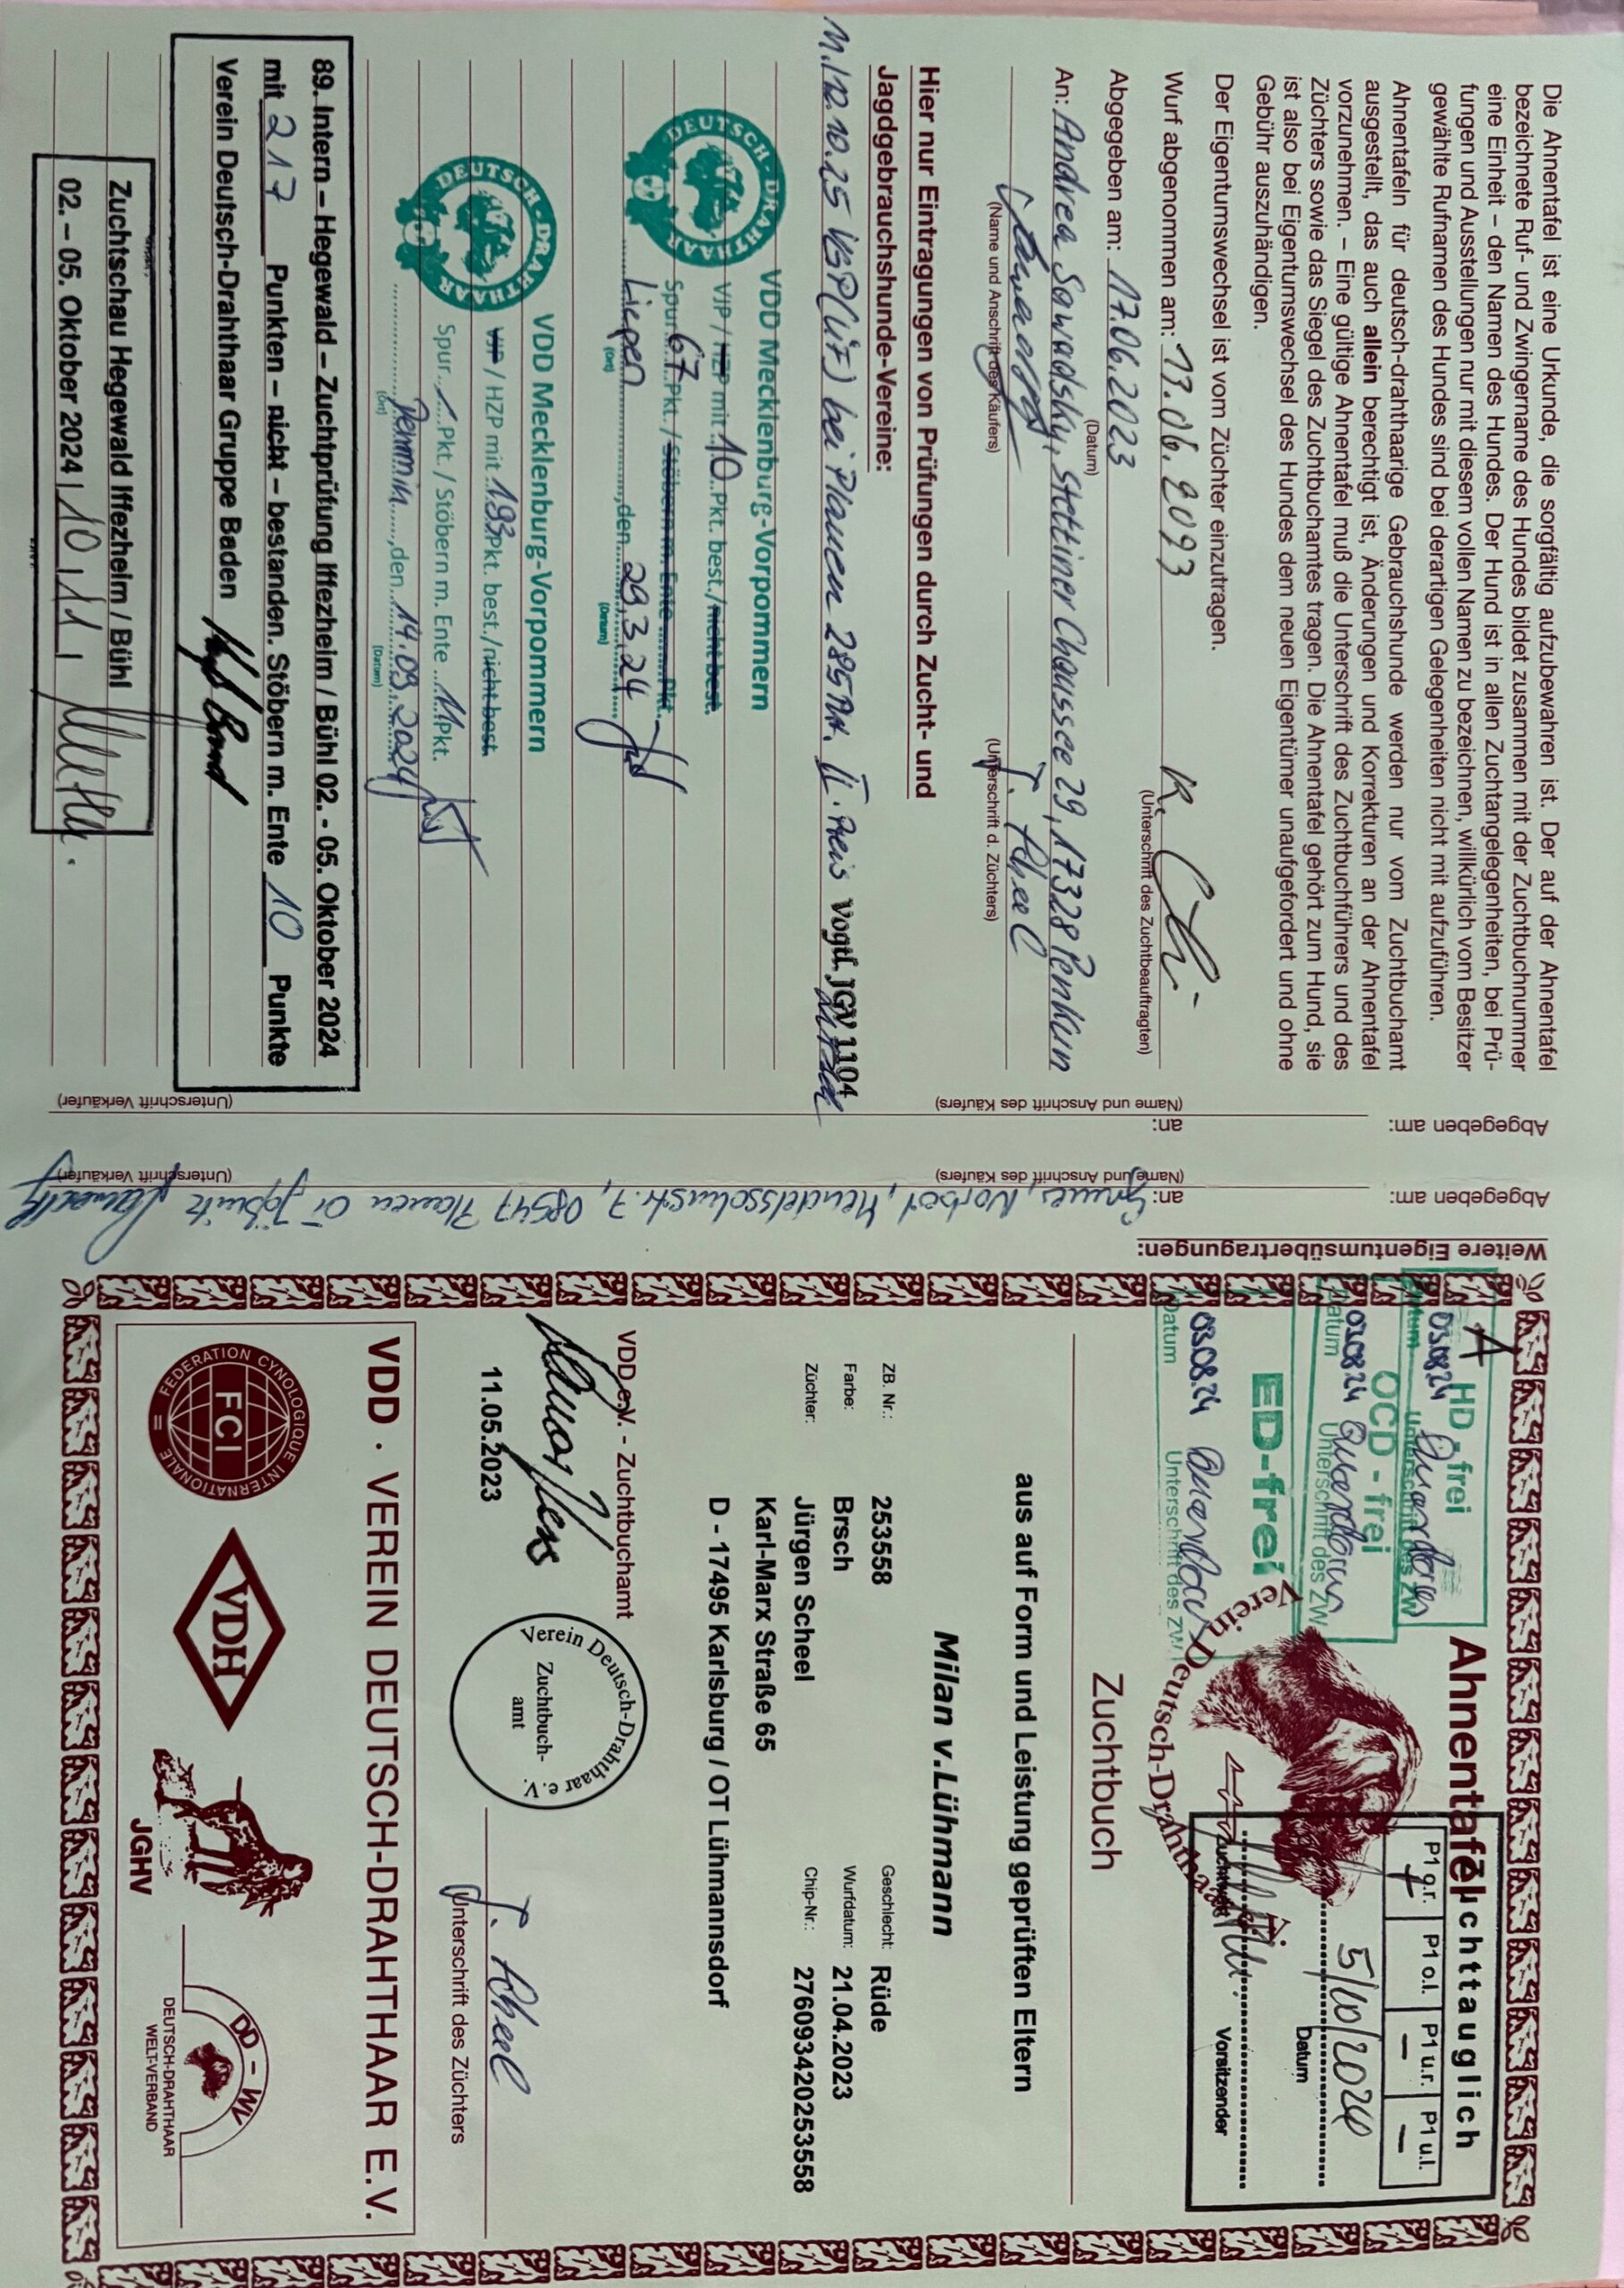 Die Ahnentafel ist eine Urkunde, die sorgfältig aufzubewahren ist. Der auf der Ahnentafel
bezeichnete Ruf- und Zwingername des Hundes bildet zusammen mit der Zuchtbuchnummer
eine Einheit – den Namen des Hundes. Der Hund ist in allen Zuchtangelegenheiten, bei Prü-
fungen und Ausstellungen nur mit diesem vollen Namen zu bezeichnen, willkürlich vom Besitzer
gewählte Rufnamen des Hundes sind bei derartigen Gelegenheiten nicht mit aufzuführen.
Ahnentafeln für deutsch-drahthaarige Gebrauchshunde werden nur vom Zuchtbuchamt
ausgestellt, das auch allein berechtigt ist, Änderungen und Korrekturen an der Ahnentafel
vorzunehmen. – Eine gültige Ahnentafel muß die Unterschrift des Zuchtbuchführers und des
Züchters sowie das Siegel des Zuchtbuchamtes tragen. Die Ahnentafel gehört zum Hund, sie
ist also bei Eigentumswechsel des Hundes dem neuen Eigentümer unaufgefordert und ohne
Gebühr auszuhändigen.
Der Eigentumswechsel ist vom Züchter einzutragen.
Wurf abgenommen am: 13.06.2023
(Unterschrift des Zuchtbeauftragten)
Abgegeben am: 17.06.2023
(Datum)
An: Andrea Sawadsky, Stettiner Chaussee 29, 17328 Penkun
J. Scheel
(Name und Anschrift des Käufers) (Unterschrift d. Züchters)
Hier nur Eintragungen von Prüfungen durch Zucht- und
Jagdgebrauchshunde-Vereine:
11./12.10.25 VGP(ÜF) bei Plauen 285 Pkt. II. Preis Vogtl. JGV 1104
VDD Mecklenburg-Vorpommern
VJP / HZP mit 70 Pkt. best./nicht best.
Spur 67 Pkt. / Stöbern m. Ente ........ Pkt.
Liepen, den 29.3.24
(Ort) (Datum)
DEUTSCH-DRAHTHAAR
VDD Mecklenburg-Vorpommern
VJP / HZP mit 193 Pkt. best./nicht best.
Spur ./. Pkt. / Stöbern m. Ente 11 Pkt.
Demmin, den 14.09.2024
(Ort) (Datum)
DEUTSCH-DRAHTHAAR
89. Intern – Hegewald – Zuchtprüfung Iffezheim / Bühl 02. - 05. Oktober 2024
mit 217 Punkten – nicht – bestanden. Stöbern m. Ente 10 Punkte
Verein Deutsch-Drahthaar Gruppe Baden
Zuchtschau Hegewald Iffezheim / Bühl
02. – 05. Oktober 2024 | 10 | 11 |
Weitere Eigentumsübertragungen:
Abgegeben am: an: Norbert, Mendelssohnstr. 7, 08547 Plauen OT Jößnitz
(Name und Anschrift des Käufers) (Unterschrift Verkäufer)
Abgegeben am: an:
(Name und Anschrift des Käufers) (Unterschrift Verkäufer)
Ahnentafel
Zuchttauglich
P1 o.r. P1 o.l. P1 u.r. P1 u.l.
5/10/2024
Datum
Vorsitzender
A HD - frei
03.08.24
Datum Unterschrift des ZW
OCD - frei
03.08.24
Datum Unterschrift des ZW
ED-frei
03.08.24
Datum Unterschrift des ZW
Verein Deutsch-Drahthaar e.V.
Zuchtbuch
aus auf Form und Leistung geprüften Eltern
Milan v.Lühmann
ZB. Nr.: 253558 Geschlecht: Rüde
Farbe: Brsch Wurfdatum: 21.04.2023
Züchter: Jürgen Scheel Chip-Nr.: 276093420253558
Karl-Marx Straße 65
D - 17495 Karlsburg / OT Lühmannsdorf
VDD e.V. - Zuchtbuchamt
Verein Deutsch-Drahthaar e.V.
Zuchtbuch-
amt
11.05.2023
J. Scheel
Unterschrift des Züchters
VDD · VEREIN DEUTSCH-DRAHTHAAR E.V.
FEDERATION CYNOLOGIQUE INTERNATIONALE
FCI
VDH
JGHV
DD - WV
DEUTSCH-DRAHTHAAR
WELT-VERBAND